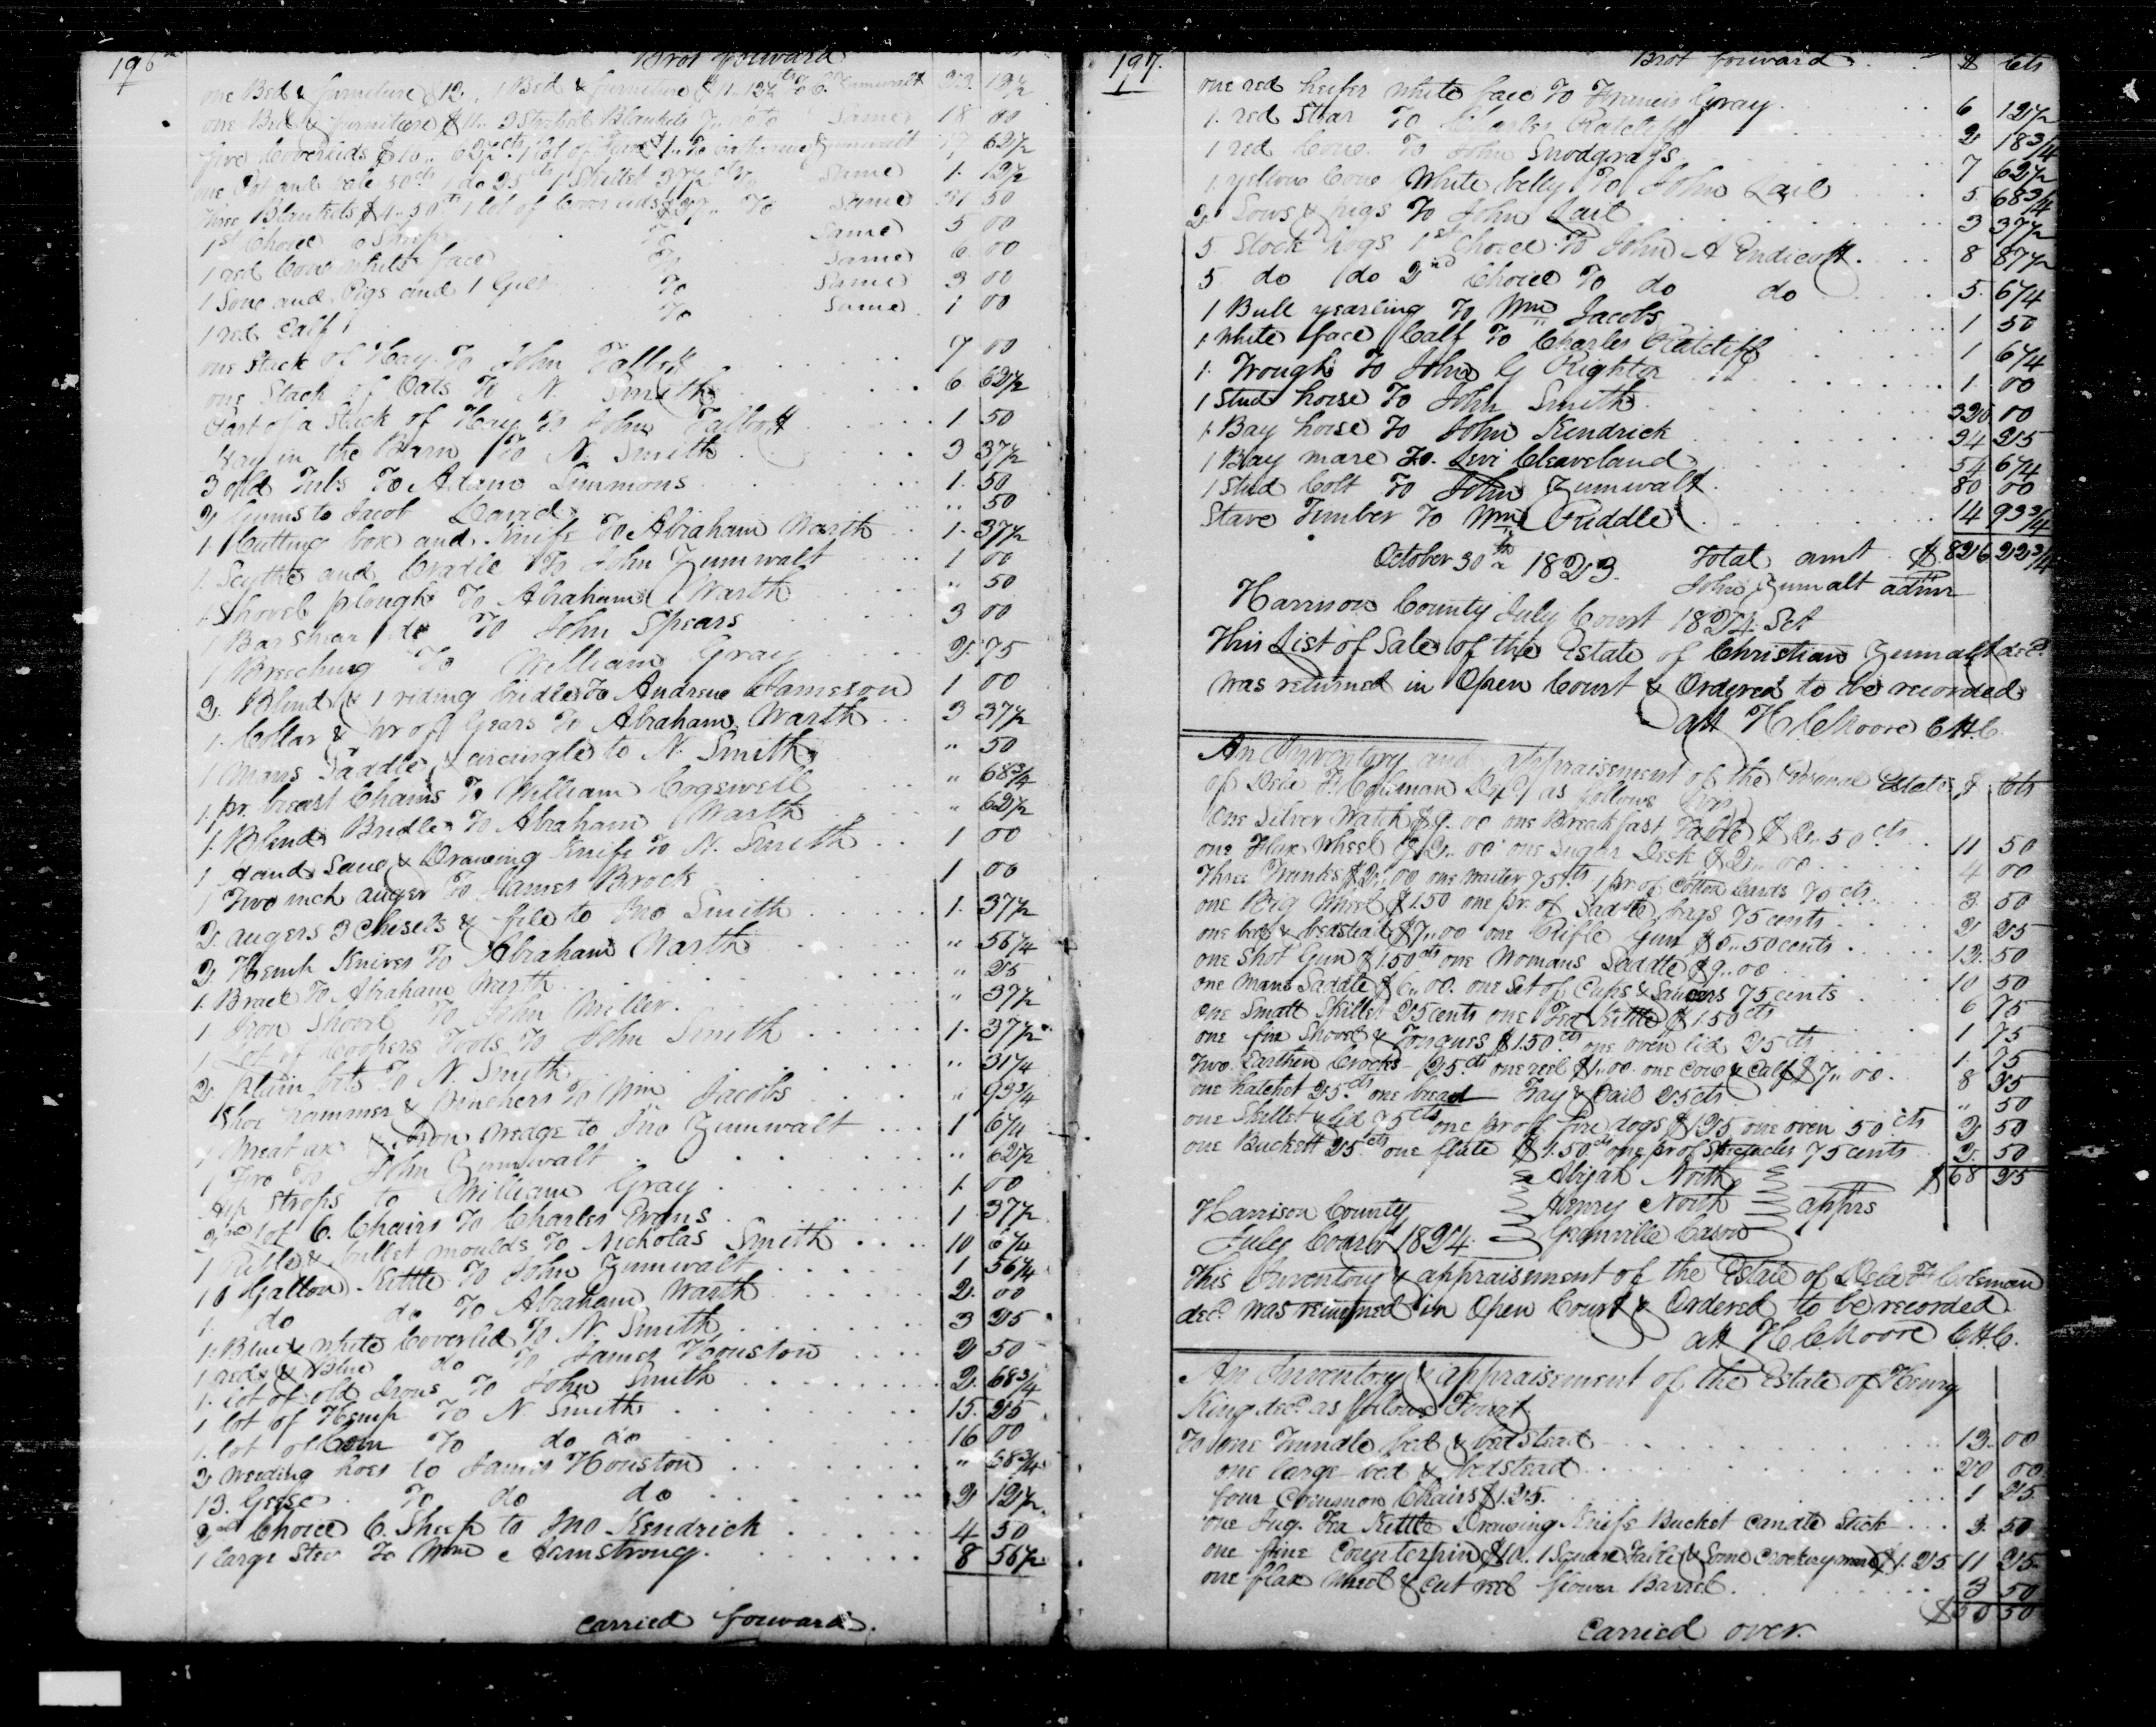 196
Brot forward
one Bed & furniture $12. 1 Bed & furniture $11.12½ cts To C. Zumwalt 23. 12½
one Bed & furniture $11. Blankets Same 18 00
five Coverlids 62½ cts 1 lot of To Catharine Zumwalt 17 62½
one Pot and bale 50cts 1 do 25cts 1 Skillet 37½ cts To Same 1. 12½
three Blankets $4.50cts 1 lot of Coverlids To Same 31 50
1st Choice 6 Sheep To Same 5 00
1 red Cow white face To Same 6. 00
1 Sow and Pigs and 1 To Same 3 00
1 red Calf To Same 1 00
one Stack of Hay To John Talbott 7 00
one Stack of Oats To N. Smith 6 62½
Part of a Stack of Hay To John Talbott 1 50
Hay in the Barn To N. Smith 3 37½
3 old Tubs To Adam Simmons 1. 50
2 Gums to Jacob " 50
1. Cutting box and Knife To Abraham Warth 1. 37½
1. Scythe and Cradle To John Zumwalt 1 00
1. Shovel plough To Abraham Warth " 50
1 Bar Shear do To John Spears 3 00
1 Breeching To William Gray 2. 75
2. Blind & 1 riding bridles To Andrew Jameson 1 00
1. Collar & pr of Gears To Abraham Warth 3 37½
1 Mans Saddle & circingle to N. Smith " 50
1. pr. breast Chains To William Cogswell " 68¾
1. Blind Bridle To Abraham Warth " 62½
1 Hand Saw & Drawing Knife To N. Smith 1 00
1 Two inch auger To James Brock 1 00
2. augers 3 Chisels & file to Jno Smith 1. 37½
2. Hemp Knives To Abraham Warth " 56¼
1. Brace To Abraham Warth " 25
1 Iron Shovel To John Miller " 37½
1 Lot of Coopers Tools To John Smith 1. 37½
2 plain bits To N. Smith " 31¼
Shoe hammer & pinchers To Wm Jacobs " 93¾
1 Meat ax & Iron wedge to Jno Zumwalt 1 6¼
1 To John Zumwalt " 62½
Hip Strops to William Gray 1. 00
2nd lot 6. Chairs To Charles Evans 1 37½
1 Rifle & bullet moulds To Nicholas Smith 10 6¼
1 10 Gallon Kettle To John Zumwalt 1 56¼
1. do do To Abraham Warth 2. 00
1. Blue & white Coverlid To N. Smith 3 25
1 red & Blue do To James Houston 2 50
1. lot of old Irons To John Smith 2. 68¾
1 lot of Hemp To N. Smith 15. 25
1. lot of Corn To do do 16 00
2 weeding hoes to James Houston " 68¾
13. Geese To do do 2 12½
2nd Choice 6. Sheep to Jno Kendrick 4 50
1 large Steer To Wm Armstrong. 8 56½
carried forward.
197.
Brot forward $ Cts
one red heifer white face To Francis Gray 6 12½
1. red Stear To Charles Ratcliff 2 18¾
1 red Cow To John Snodgrass 7 62½
1. yellow Cow White belly To John Lail 5. 68¾
2 Sows & pigs To John Lail 3 37½
5 Stock hogs 1st Choice To John A Endicott 8 87½
5 do do 2nd Choice To do do 5. 6¼
1 Bull yearling To Wm Jacobs 1 50
1 White face Calf To Charles Ratcliff 1 6¼
1. Trough To John G Rightor 1. 00
1 Stud horse To John Smith 320 00
1. Bay horse To John Kendrick 24 25
1 Bay mare To. Levi Cleaveland 54 6¼
1 Stud Colt To John Zumwalt 80 00
Stave Timber To Wm Puddle 14 93¾
October 30th 1823. Total amt $ 826 22¾
John Zumalt admr
Harrison County July Court 1824. Sct
This List of Sale of the Estate of Christian Zumalt decd.
was returned in Open Court & Ordered to be recorded
att H. C. Moore C.H.C.
An Inventory and appraisement of the Personal Estate $ Cts
of Coleman Decd as follows
One Silver Watch $9.00 one Breakfast Table $2.50cts 11 50
one Flax Wheel $2.00 one Sugar Desk $2.00 4 00
Three Trunks $2.00 one Waiter 75cts 1 pr. of Cotton Cards 70cts 3. 50
one Big Wheel $1.50 one pr. of Saddle bags 75cents 2 25
one bed & bedstead $7.00 one Rifle Gun $5.50cents 12. 50
one Shot Gun $1.50cts one Womans Saddle $9.00 10 50
one Mans Saddle $6.00. one Set of Cups & Saucers 75cents 6 75
one Small Skillet 25cents one Tea Kettle $1.50cts 1 75
one fire Shovel & Tongues $1.50.cts one oven lid 25cts 1. 75
Two Earthen Crocks 25cts one reel $1.00. one Cow & Calf $7.00. 8 25
one hatchet 25.cts one bread Tray & Pail 25cts " 50
one Skillet & lid 75cts one pr of fire dogs $1.25 one oven 50cts 2 50
one Buckett 25.cts one flute $1.50.cts one pr of Spectacles 75cents 2. 50
$68 25
Abijah North
Henry North apprs
Granville Cason
Harrison County
July Court 1824.
This Inventory & appraisement of the Estate of Coleman
decd. was returned in Open Court & Ordered to be recorded
att H. C. Moore C.H.C.
An Inventory & appraisement of the Estate of Henry
King decd. as follows
To one Trundle bed & bedstead 13. 00
one large bed & bedstead 20 00
four Common Chairs $1.25. 1 25
one Jug. Tea Kettle Drawing Knife Bucket Candle Stick 3. 50
one fine Counterpin $10. 1 Square Table & Some Crockery ware $1.25 11 25
one flax wheel & cut reel flower Barrel. 3 50
$50 50
Carried over.